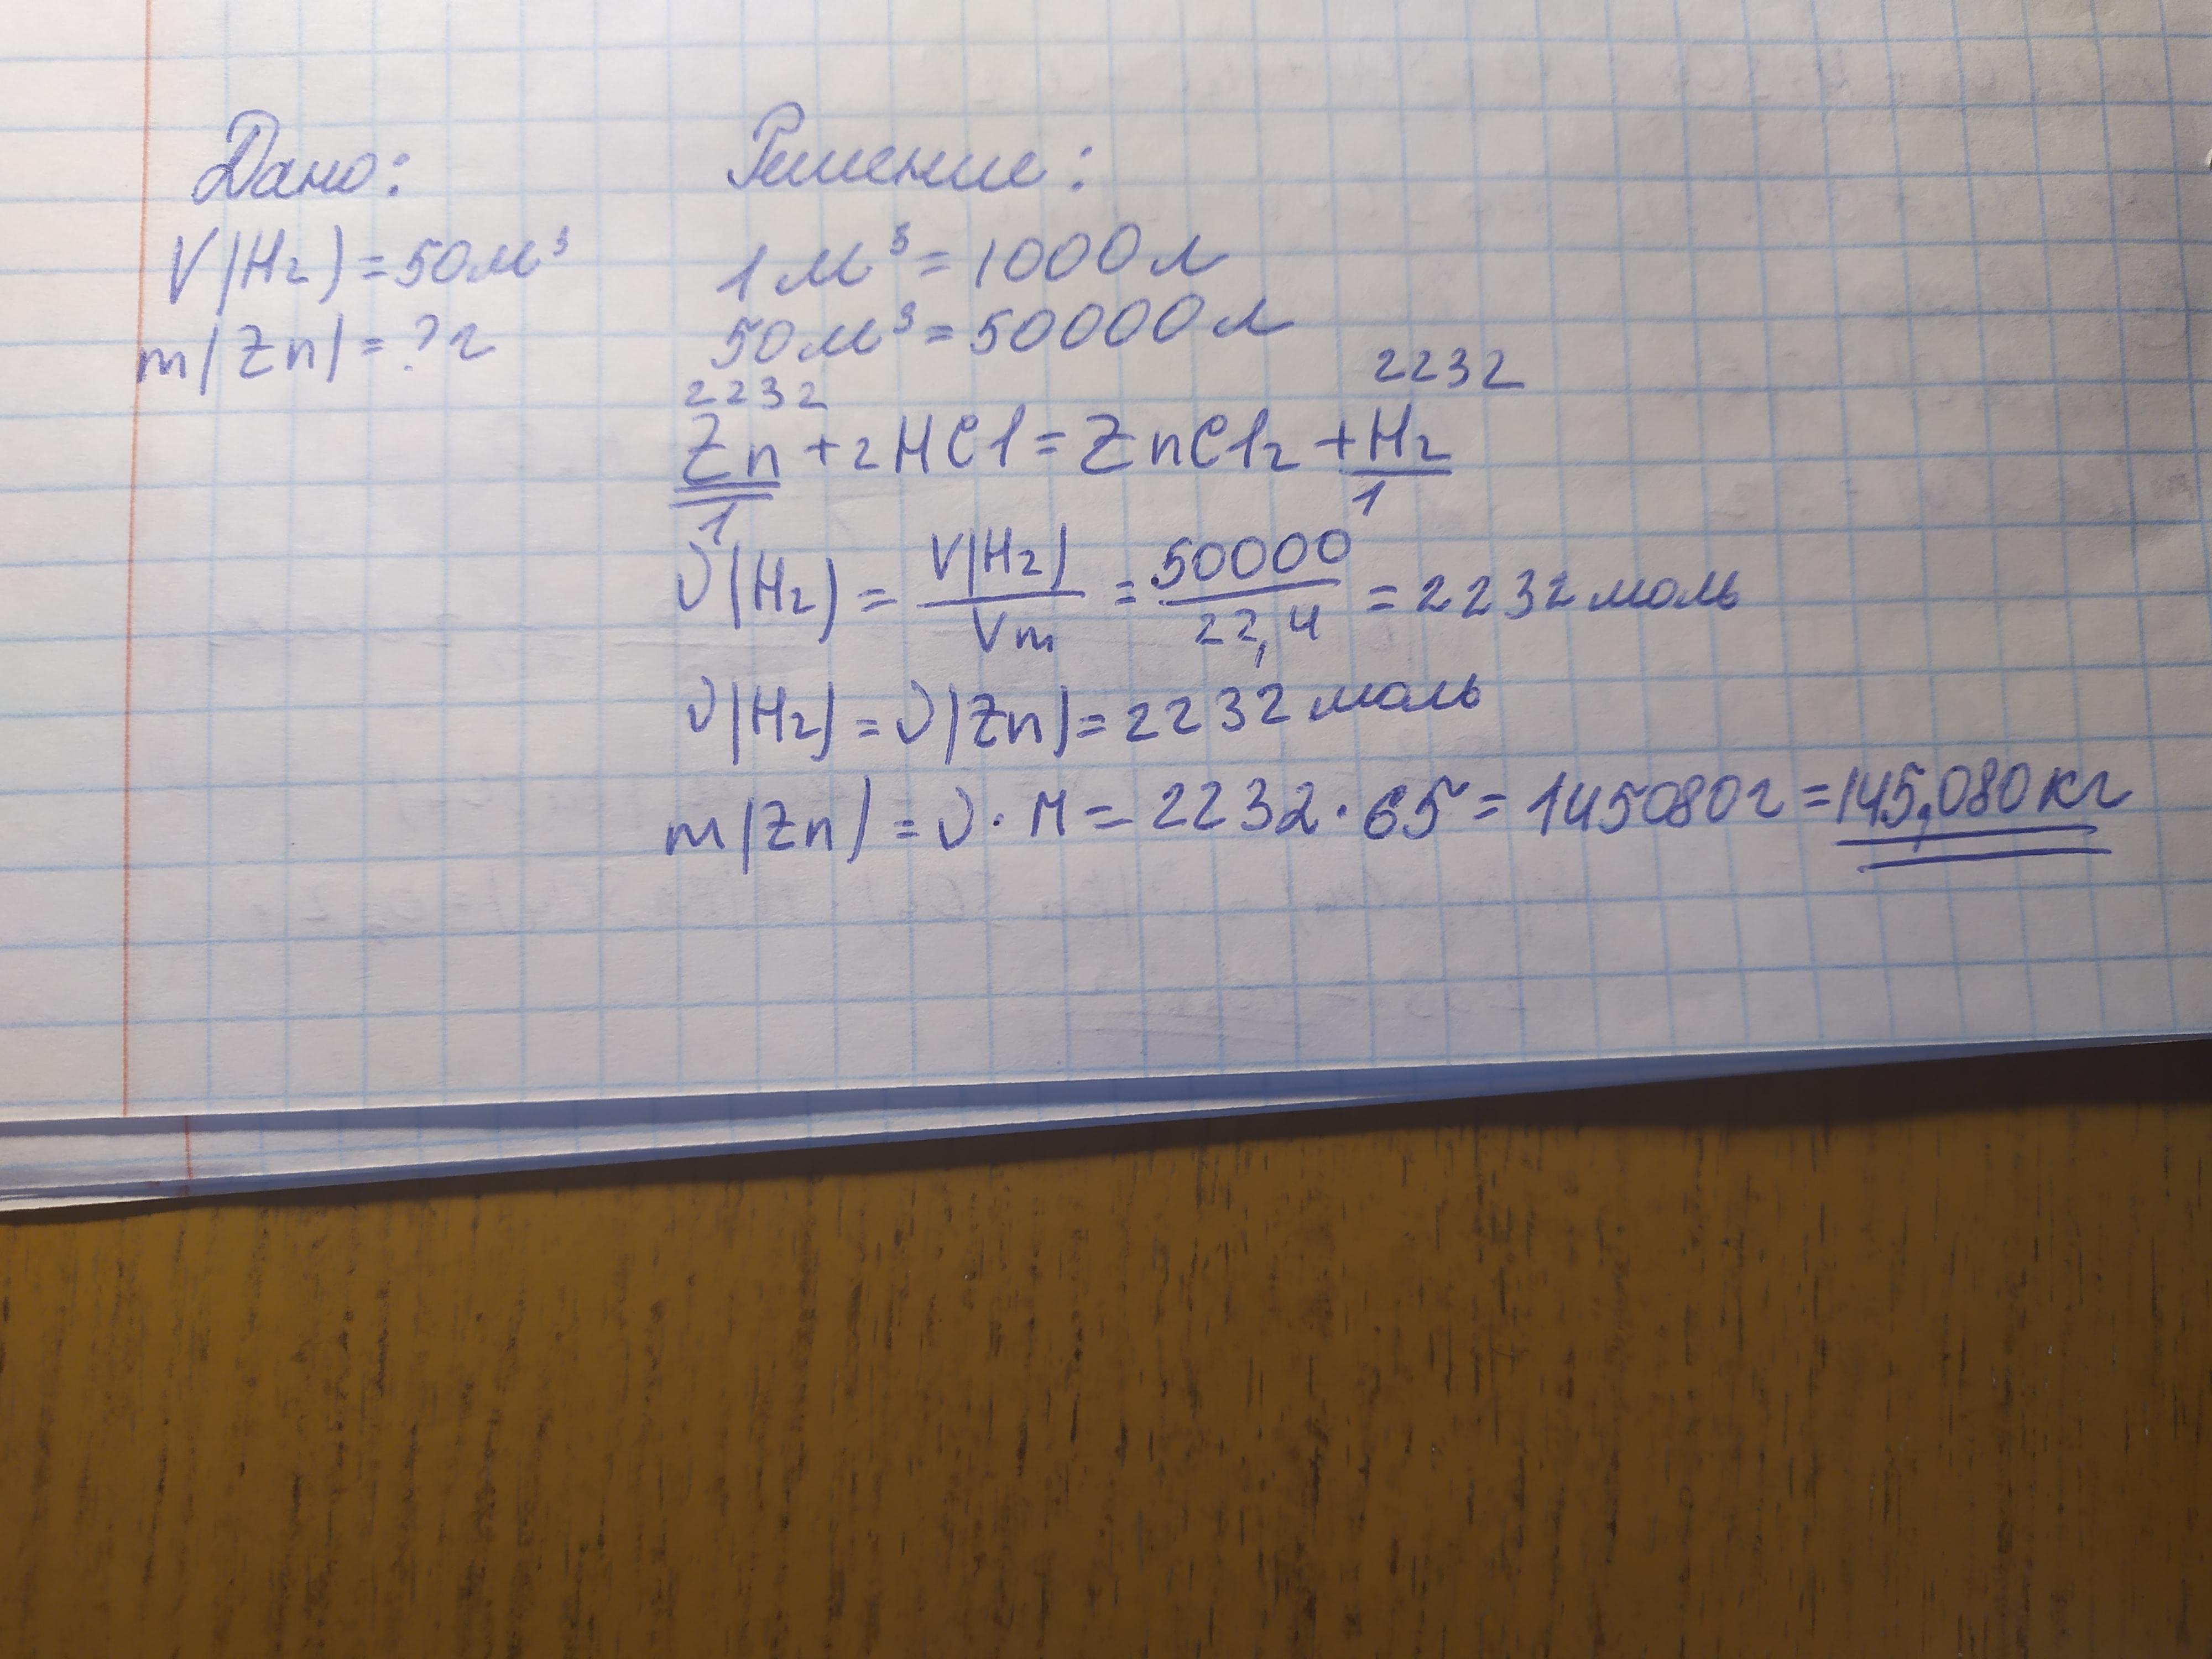 Дано:
V(H₂)=50м³
m(Zn)=?г
Решение:
1м³=1000л
50м³=50000л
2232 2232
Zn+2HCl=ZnCl₂+H₂
1 1
ν(H₂)=V(H₂)/Vm=50000/22,4=2232моль
ν(H₂)=ν(Zn)=2232моль
m(Zn)=ν·M=2232·65=145080г=145,080кг